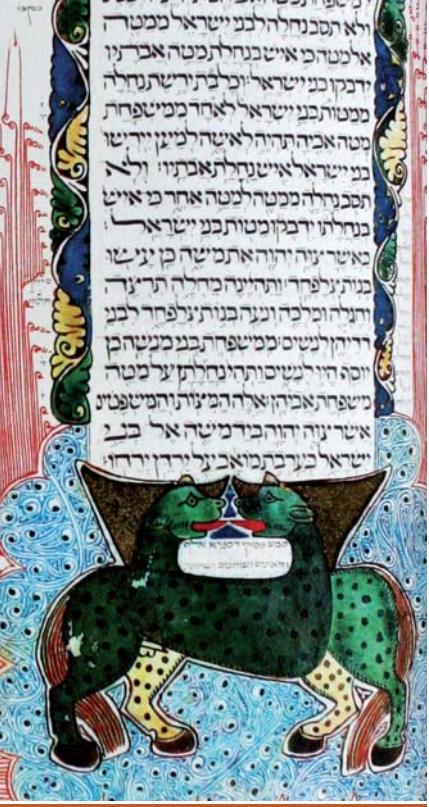 ולא תסב נחלה לבני ישראל ממטה
אל מטה כי איש בנחלת מטה אבתיו
ידבקו בני ישראל וכל בת ירשת נחלה
ממטות בני ישראל לאחד ממשפחת
מטה אביה תהיה לאשה למען יירשו
בני ישראל איש נחלת אבתיו ולא
תסב נחלה ממטה למטה אחר כי איש
בנחלתו ידבקו מטות בני ישראל
כאשר צוה יהוה את משה כן עשו
בנות צלפחד ותהיינה מחלה תרצה
וחגלה ומלכה ונעה בנות צלפחד לבני
דדיהן לנשים ממשפחת בני מנשה בן
יוסף היו לנשים ותהי נחלתן על מטה
משפחת אביהן אלה המצות והמשפטים
אשר צוה יהוה ביד משה אל בני
ישראל בערבת מואב על ירדן ירחו
פסוקי דספרא אלף